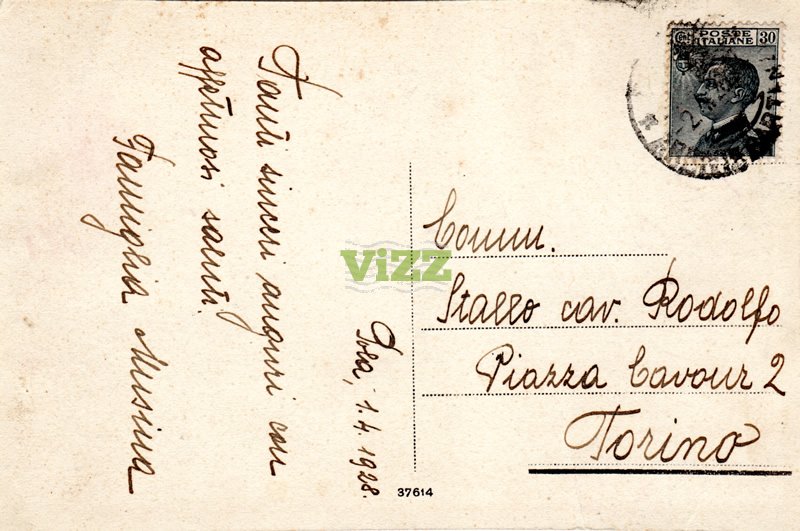 Tanti sinceri auguri con
affettuosi saluti.
Famiglia Musina
1.4.1928.
POSTE
ITALIANE
30
Comm.
Stallo cav. Rodolfo
Piazza Cavour 2
Torino
37614
ViZZ